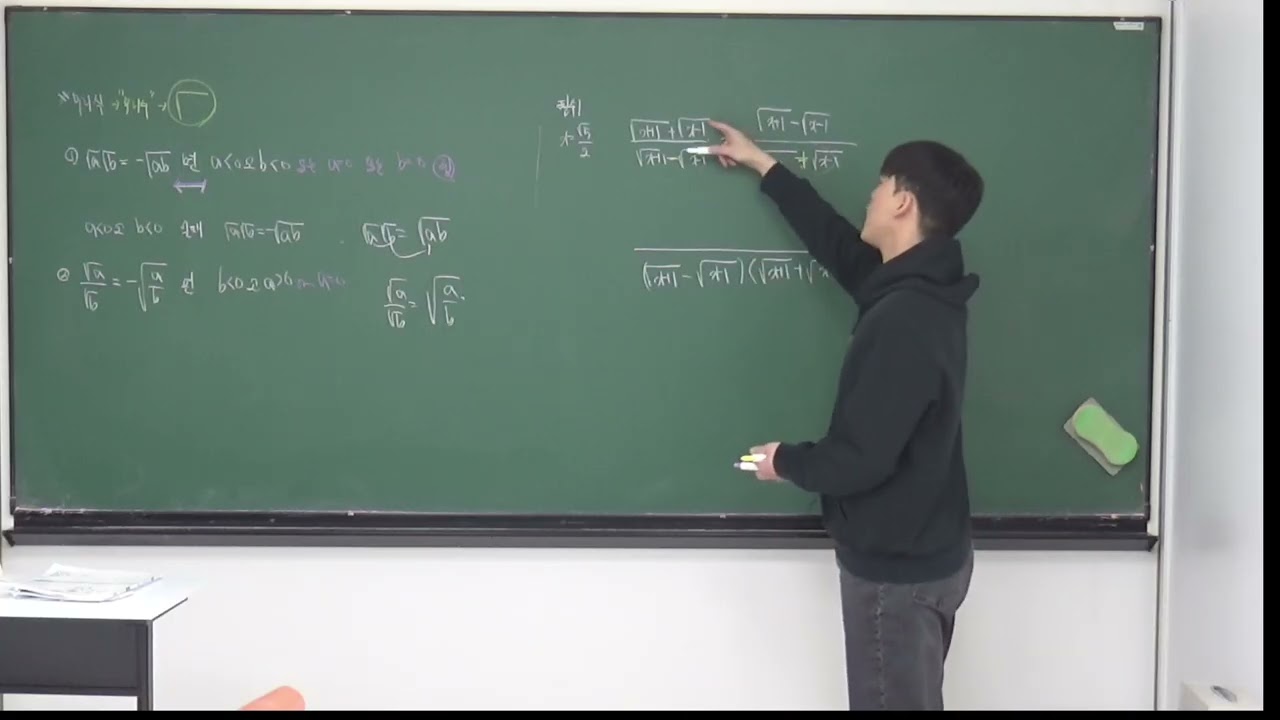 ※무리식→"무리수"→√
① √a√b = -√ab 면 a<0 or b<0 또는 a=0 또는 b=0
a<0 or b<0 일때 √a√b = -√ab
√a√b = √ab
② √a/√b = -√(a/b) 면 b<0 or a>0 a=0
√a/√b = √(a/b).
x=√5/2
(√x+1 + √x-1)/(√x+1 - √x-1)
√x+1 - √x-1
+ √x-1
(√x+1 - √x-1)(√x+1 + √x